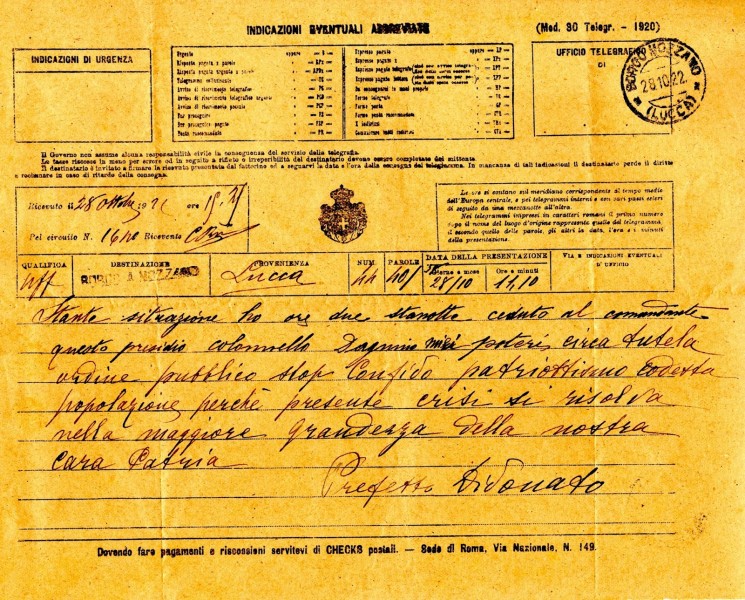 INDICAZIONI EVENTUALI ABBREVIATE
(Mod. 30 Telegr. - 1920)
INDICAZIONI DI URGENZA
Urgente
Risposta pagata x parole
Risposta pagata urgente x parole
Telegramma collazionato
Avviso di ricevimento telegrafico
Avviso di ricevimento telegrafico urgente
Avviso di ricevimento postale
Far proseguire
Posta raccomandata
Espresso pagato x parole
Espresso pagato x
Espresso pagato telegrafo
Espresso pagato lettera
Da consegnarsi in mani proprie
Fermo telegrafo
Fermo posta
X indirizzi
Comunicare tutti indirizzi
UFFICIO TELEGRAFICO
DI
BORGO MOZZANO
28.10.22
(LUCCA)
Il Governo non assume alcuna responsabilità civile in conseguenza del servizio della telegrafia.
Le tasse riscosse in meno per errore od in seguito a rifiuto e irreperibilità del destinatario devono essere completate dal mittente.
Il destinatario è invitato a firmare la ricevuta presentata dal fattorino ed a segnarvi la data e l'ora della consegna del telegramma. In mancanza di tali indicazioni il destinatario perde il diritto
e reclamare in caso di ritardo della consegna.
Ricevuto il 28 ottobre 1922 ore
Pel circuito N. Ricevente
Le ore si contano sul meridiano corrispondente al tempo medio
dell'Europa centrale, e pei telegrammi interni e con vari paesi esteri
di seguito da una mezzanotte all'altra.
Nei telegrammi impressi in caratteri romani il primo numero
dopo il nome del luogo d'origine rappresenta quello del telegramma,
il secondo quello delle parole, gli altri la data, l'ora e i minuti
della presentazione.
QUALIFICA DESTINAZIONE PROVENIENZA NUM. PAROLE DATA DELLA PRESENTAZIONE VIA E INDICAZIONI EVENTUALI D'UFFICIO
Giorno e mese Ore e minuti
Uff BORGO A MOZZANO Lucca 44 40/ 28/10 11,10
Stante situazione ho ore due stanotte ceduto al comandante
questo presidio colonnello miei poteri circa tutela
ordine pubblico stop Confido patriottismo codesta
popolazione perché presente crisi si risolva
nella maggiore grandezza della nostra
cara Patria
Prefetto Didonato
Dovendo fare pagamenti e riscossioni servitevi di CHECKS postali. — Sede di Roma, Via Nazionale, N. 149.